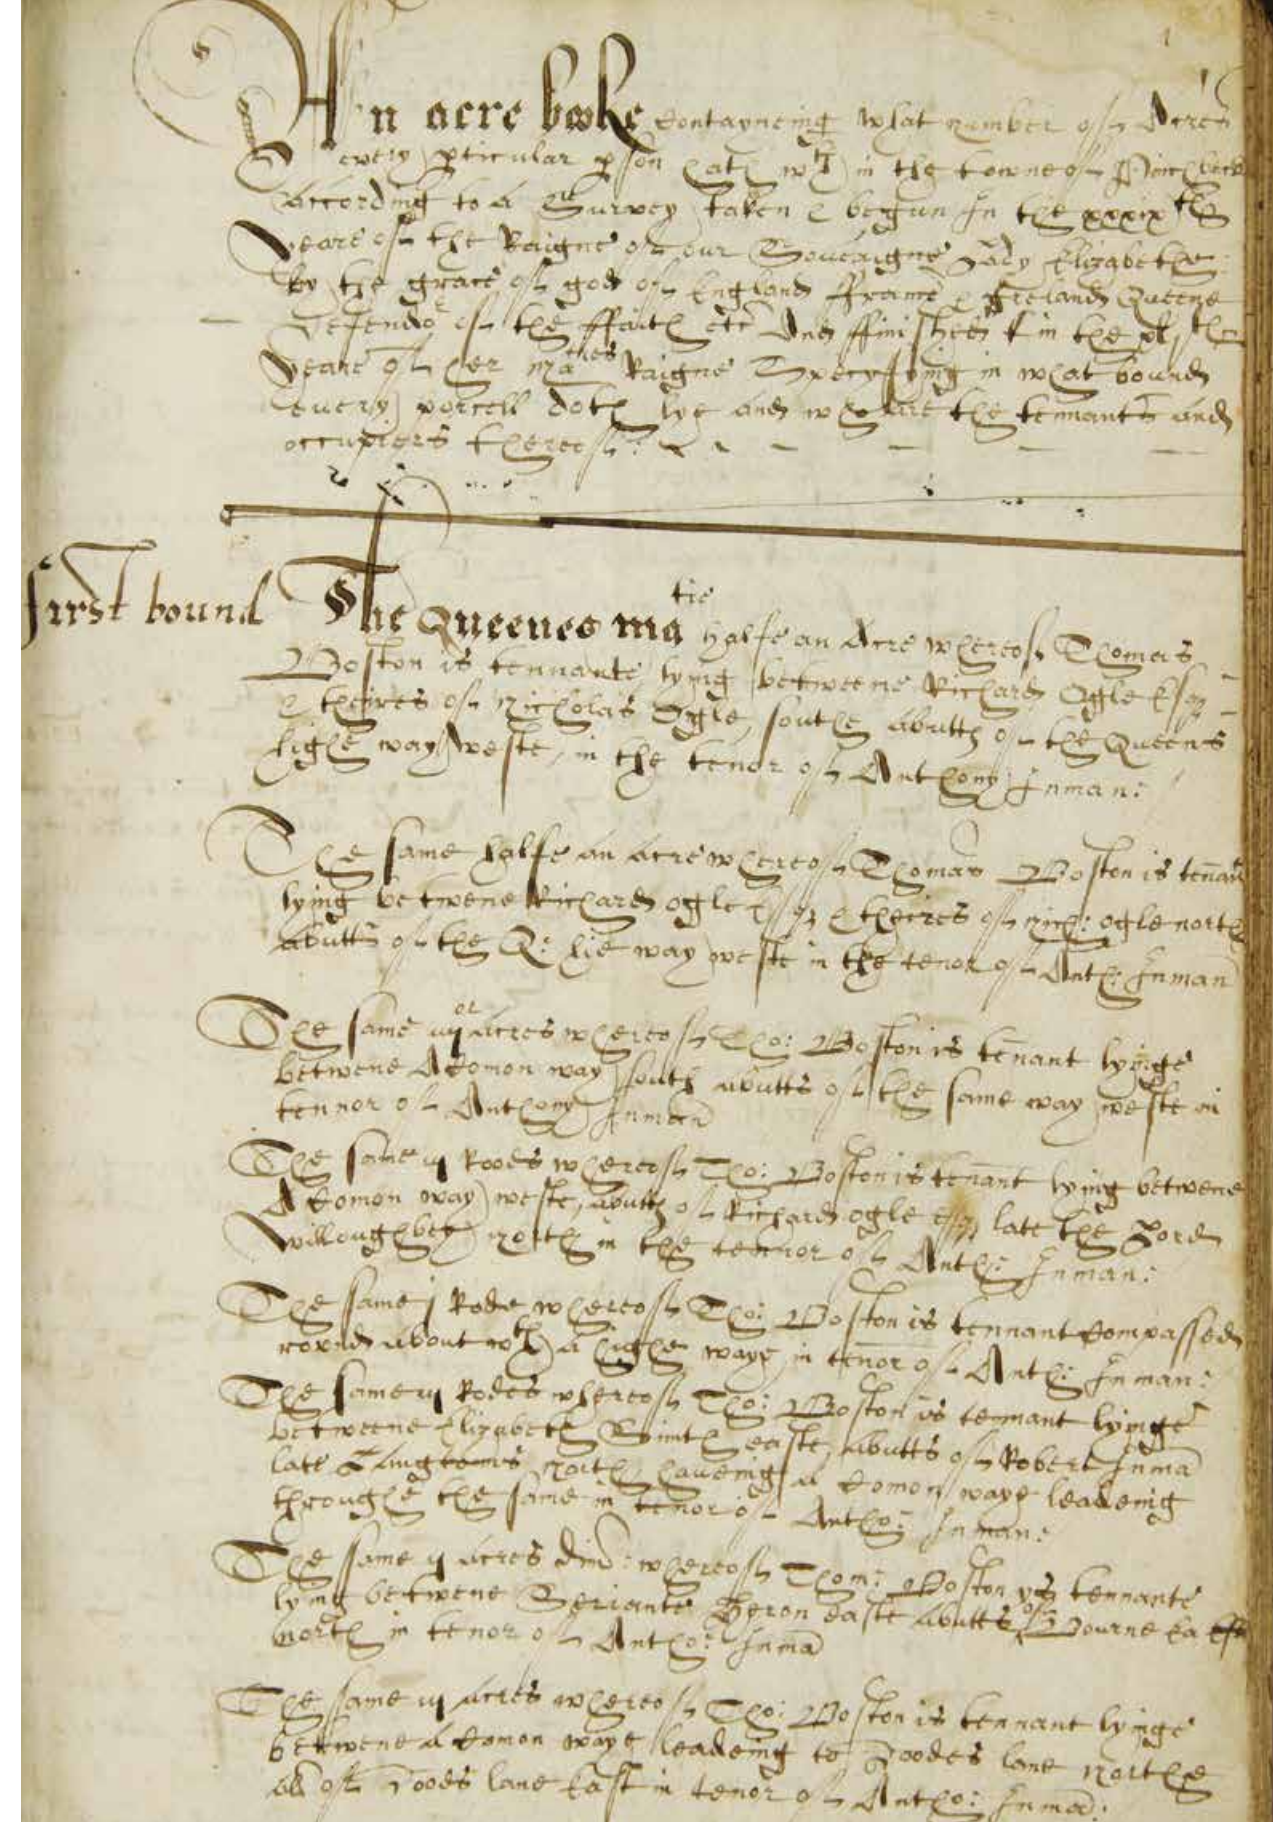 An acre booke Contayneing what number of Acres
every pticular pson hath wth in the towne of Pinchbeck
According to a Survey taken & begun In the xxxixth
Yeare of the Raigne of our Soveraigne Lady Elizabethe
by the grace of god of England ffrance & Ireland Queene
Defendor of the ffaith etc And ffinished in the xlth
Yeare of her maties Raigne Specyfying in what bound
every porcell doth lye and who are the tennants and
occupiers thereof:
first bound
The Queenes matie halfe an Acre whereof Thomas
Boston is tennante lying betweene Richard Ogle Esqr
& theires of Nicholas Ogle southe abutts of the Queens
highe way weste, in the tenor of Anthony Inman:
The same halfe an acre whereof Thomas Boston is tenant
lying betwene Richard ogle esqr & theires of nich: ogle north
abutts of the Q: hie way weste in the tenor of Anth: Inman
The same iiijor acres whereof Tho: Boston is tennant lyinge
betwene A Comon way south abutts of the same way weste in
tennor of Anthony Inman
The same iij Roods whereof Tho: Boston is tenant lying betwene
A Comon way weste, abutts of Richard ogle esqr late the Lord
Willoughbey north in the tennor of Anth: Inman:
The same j Rode whereof Tho: Boston is tennant Compassed
round about wth a highe waye in tenor of Anth: Inman:
The same iij Rodes whereof Tho: Boston is tennant lyinge
betweene Elizabeth Smith easte, abutts of Robert Inma
late Langtons north haveing a Comon waye leadeing
throughe the same in tenor of Antho: Inman:
The same ij acres dim: whereof Thom: Boston ys tennante
lying betwene Seriante Heron easte abutts of Bourne Ea
north in tenor of Antho: Inma
The same iij acres whereof Tho: Boston is tennant lyinge
betwene a Comon waye leadeing to Roodes lane northe
ab of Roods lane East in tenor of Antho: Inma: